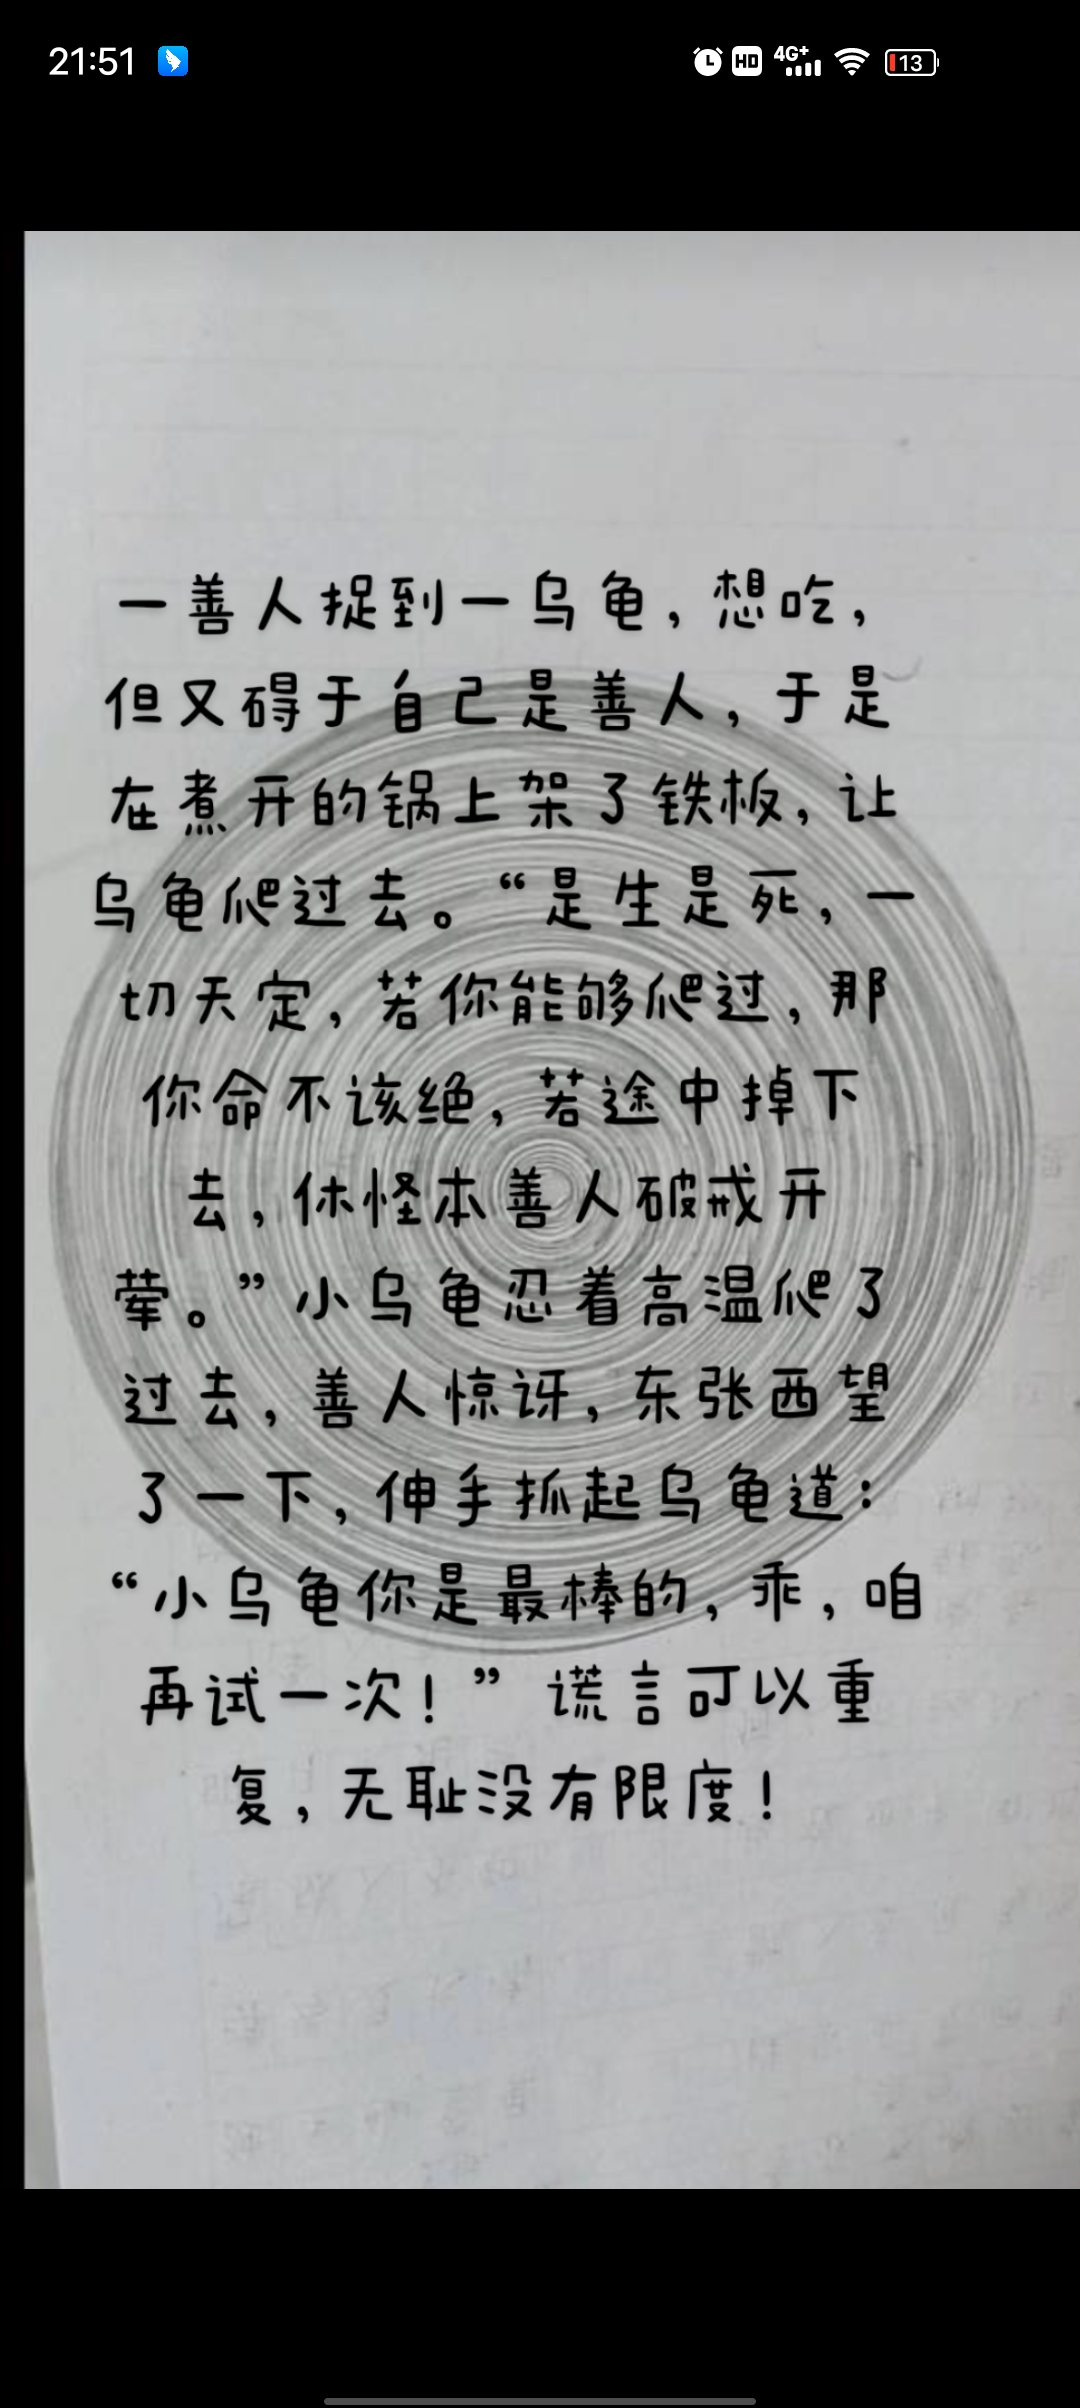 21:51
HD 4G+ 13
一善人捉到一乌龟，想吃，
但又碍于自己是善人，于是
在煮开的锅上架了铁板，让
乌龟爬过去。“是生是死，一
切天定，若你能够爬过，那
你命不该绝，若途中掉下
去，休怪本善人破戒开
荤。”小乌龟忍着高温爬了
过去，善人惊讶，东张西望
了一下，伸手抓起乌龟道：
“小乌龟你是最棒的，乖，咱
再试一次！”谎言可以重
复，无耻没有限度！